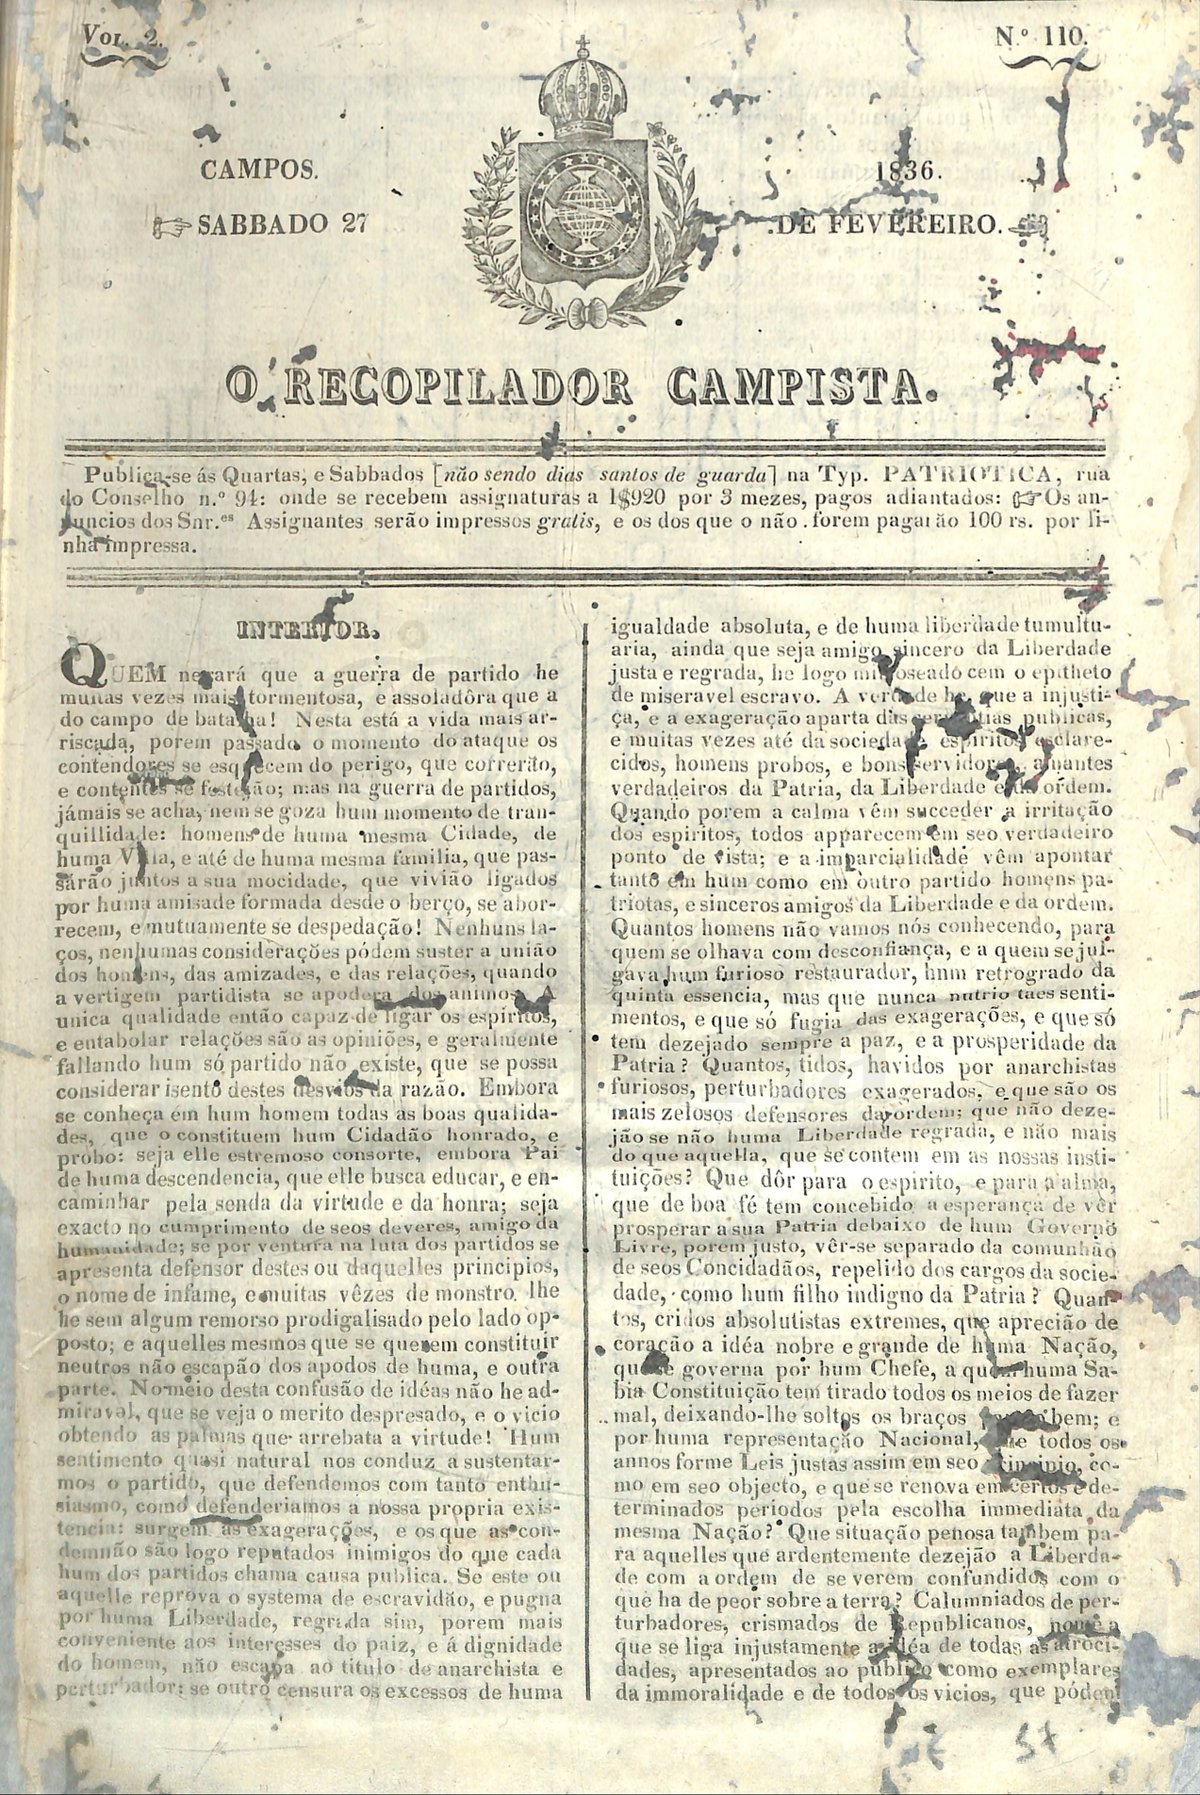 VOL. 2.
N.º 110.
CAMPOS.
1836.
SABBADO 27
DE FEVEREIRO.
O RECOPILADOR CAMPISTA.
Publica-se ás Quartas, e Sabbados [não sendo dias santos de guarda] na Typ. PATRIOTICA, rua
do Conselho n.º 94: onde se recebem assignaturas a 1$920 por 3 mezes, pagos adiantados: ☞ Os an-
nuncios dos Snr.es Assignantes serão impressos gratis, e os dos que o não forem pagarão 100 rs. por li-
nha impressa.
INTERIOR.
QUEM negará que a guerra de partido he
muitas vezes mais tormentosa, e assoladôra que a
do campo de batalha! Nesta está a vida mais ar-
riscada, porem passado o momento do ataque os
contendores se esquecem do perigo, que correrão,
e contentes se festejão; mas na guerra de partidos,
jámais se acha, nem se goza hum momento de tran-
quillidade: homens de huma mesma Cidade, de
huma Villa, e até de huma mesma familia, que pas-
sárão juntos a sua mocidade, que vivião ligados
por huma amisade formada desde o berço, se abor-
recem, e mutuamente se despedação! Nenhuns la-
ços, nenhumas considerações pódem suster a união
dos homens, das amizades, e das relações, quando
a vertigem partidista se apodera dos animos. A
unica qualidade então capaz de ligar os espiritos,
e entabolar relações são as opiniões, e geralmente
fallando hum só partido não existe, que se possa
considerar isento destes desvios da razão. Embora
se conheça em hum homem todas as boas qualida-
des, que o constituem hum Cidadão honrado, e
probo: seja elle estremoso consorte, embora Pai
de huma descendencia, que elle busca educar, e en-
caminhar pela senda da virtude e da honra; seja
exacto no cumprimento de seos deveres, amigo da
humanidade; se por ventura na luta dos partidos se
apresenta defensor destes ou daquelles principios,
o nome de infame, e muitas vêzes de monstro lhe
he sem algum remorso prodigalisado pelo lado op-
posto; e aquelles mesmos que se querem constituir
neutros não escapão dos apodos de huma, e outra
parte. No meio desta confusão de idéas não he ad-
miravel, que se veja o merito despresado, e o vicio
obtendo as palmas que arrebata a virtude! Hum
sentimento quasi natural nos conduz a sustentar-
mos o partido, que defendemos com tanto enthu-
siasmo, como defenderiamos a nossa propria exis-
tencia: surgem as exagerações, e os que as con-
demnão são logo reputados inimigos do que cada
hum dos partidos chama causa publica. Se este ou
aquelle reprova o systema de escravidão, e pugna
por huma Liberdade, regrada sim, porem mais
conveniente aos interesses do paiz, e á dignidade
do homem, não escapa ao titulo de anarchista e
perturbador; se outro censura os excessos de huma
igualdade absoluta, e de huma liberdade tumultu-
aria, ainda que seja amigo sincero da Liberdade
justa e regrada, he logo mimoseado com o epitheto
de miseravel escravo. A verdade he, que a injusti-
ça, e a exageração aparta das publicas,
e muitas vezes até da sociedade espiritos esclare-
cidos, homens probos, e bons servidores, amantes
verdadeiros da Patria, da Liberdade e da ordem.
Quando porem a calma vêm succeder a irritação
dos espiritos, todos apparecem em seo verdadeiro
ponto de vista; e a imparcialidade vêm apontar
tanto em hum como em outro partido homens pa-
triotas, e sinceros amigos da Liberdade e da ordem.
Quantos homens não vamos nós conhecendo, para
quem se olhava com desconfiança, e a quem se jul-
gava hum furioso restaurador, hum retrogrado da
quinta essencia, mas que nunca nutrio taes senti-
mentos, e que só fugia das exagerações, e que só
tem dezejado sempre a paz, e a prosperidade da
Patria? Quantos, tidos, havidos por anarchistas
furiosos, perturbadores exagerados, e que são os
mais zelosos defensores da ordem; que não deze-
jão se não huma Liberdade regrada, e não mais
do que aquella, que se contem em as nossas insti-
tuições? Que dôr para o espirito, e para a alma,
que de boa fé tem concebido a esperança de vêr
prosperar a sua Patria debaixo de hum Governo
Livre, porem justo, vêr-se separado da comunhão
de seos Concidadãos, repelido dos cargos da socie-
dade, como hum filho indigno da Patria? Quan-
tos, cridos absolutistas extremes, que aprecião de
coração a idéa nobre e grande de huma Nação,
que se governa por hum Chefe, a quem huma Sa-
bia Constituição tem tirado todos os meios de fazer
mal, deixando-lhe soltos os braços bem; e
por huma representação Nacional, que todos os
annos forme Leis justas assim em seo principio, co-
mo em seo objecto, e que se renova em certos e de-
terminados periodos pela escolha immediata da
mesma Nação? Que situação penosa tambem pa-
ra aquelles que ardentemente dezejão a Liberda-
de com a ordem de se verem confundidos com o
que ha de peor sobre a terra? Calumniados de per-
turbadores, crismados de Republicanos, nome a
que se liga injustamente a idéa de todas as atroci-
dades, apresentados ao publico como exemplares
da immoralidade e de todos os vicios, que pódem
57